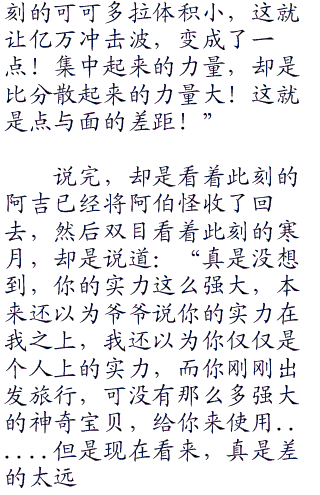 刻的可可多拉体积小，这就
让亿万冲击波，变成了一
点！集中起来的力量，却是
比分散起来的力量大！这就
是点与面的差距！”
说完，却是看着此刻的
阿吉已经将阿伯怪收了回
去，然后双目看着此刻的寒
月，却是说道：“真是没想
到，你的实力这么强大，本
来还以为爷爷说你的实力在
我之上，我还以为你仅仅是
个人上的实力，而你刚刚出
发旅行，可没有那么多强大
的神奇宝贝，给你来使用..
....但是现在看来，真是差
的太远